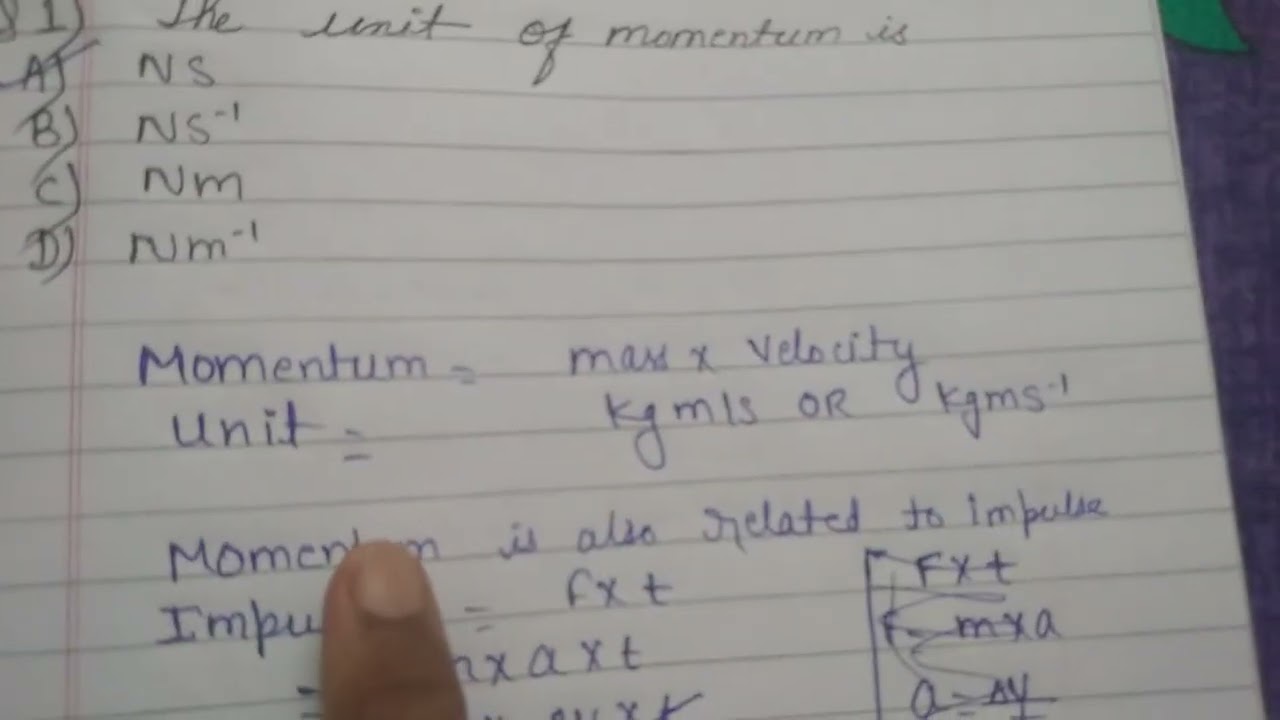 1) The unit of momentum is
A) NS
B) NS⁻¹
C) Nm
D) Nm⁻¹
Momentum = mass x velocity
Unit = kgm/s OR kgms⁻¹
Momentum is also related to impulse
= F x t
x a x t
x t
F x t
m x a
a = ΔV